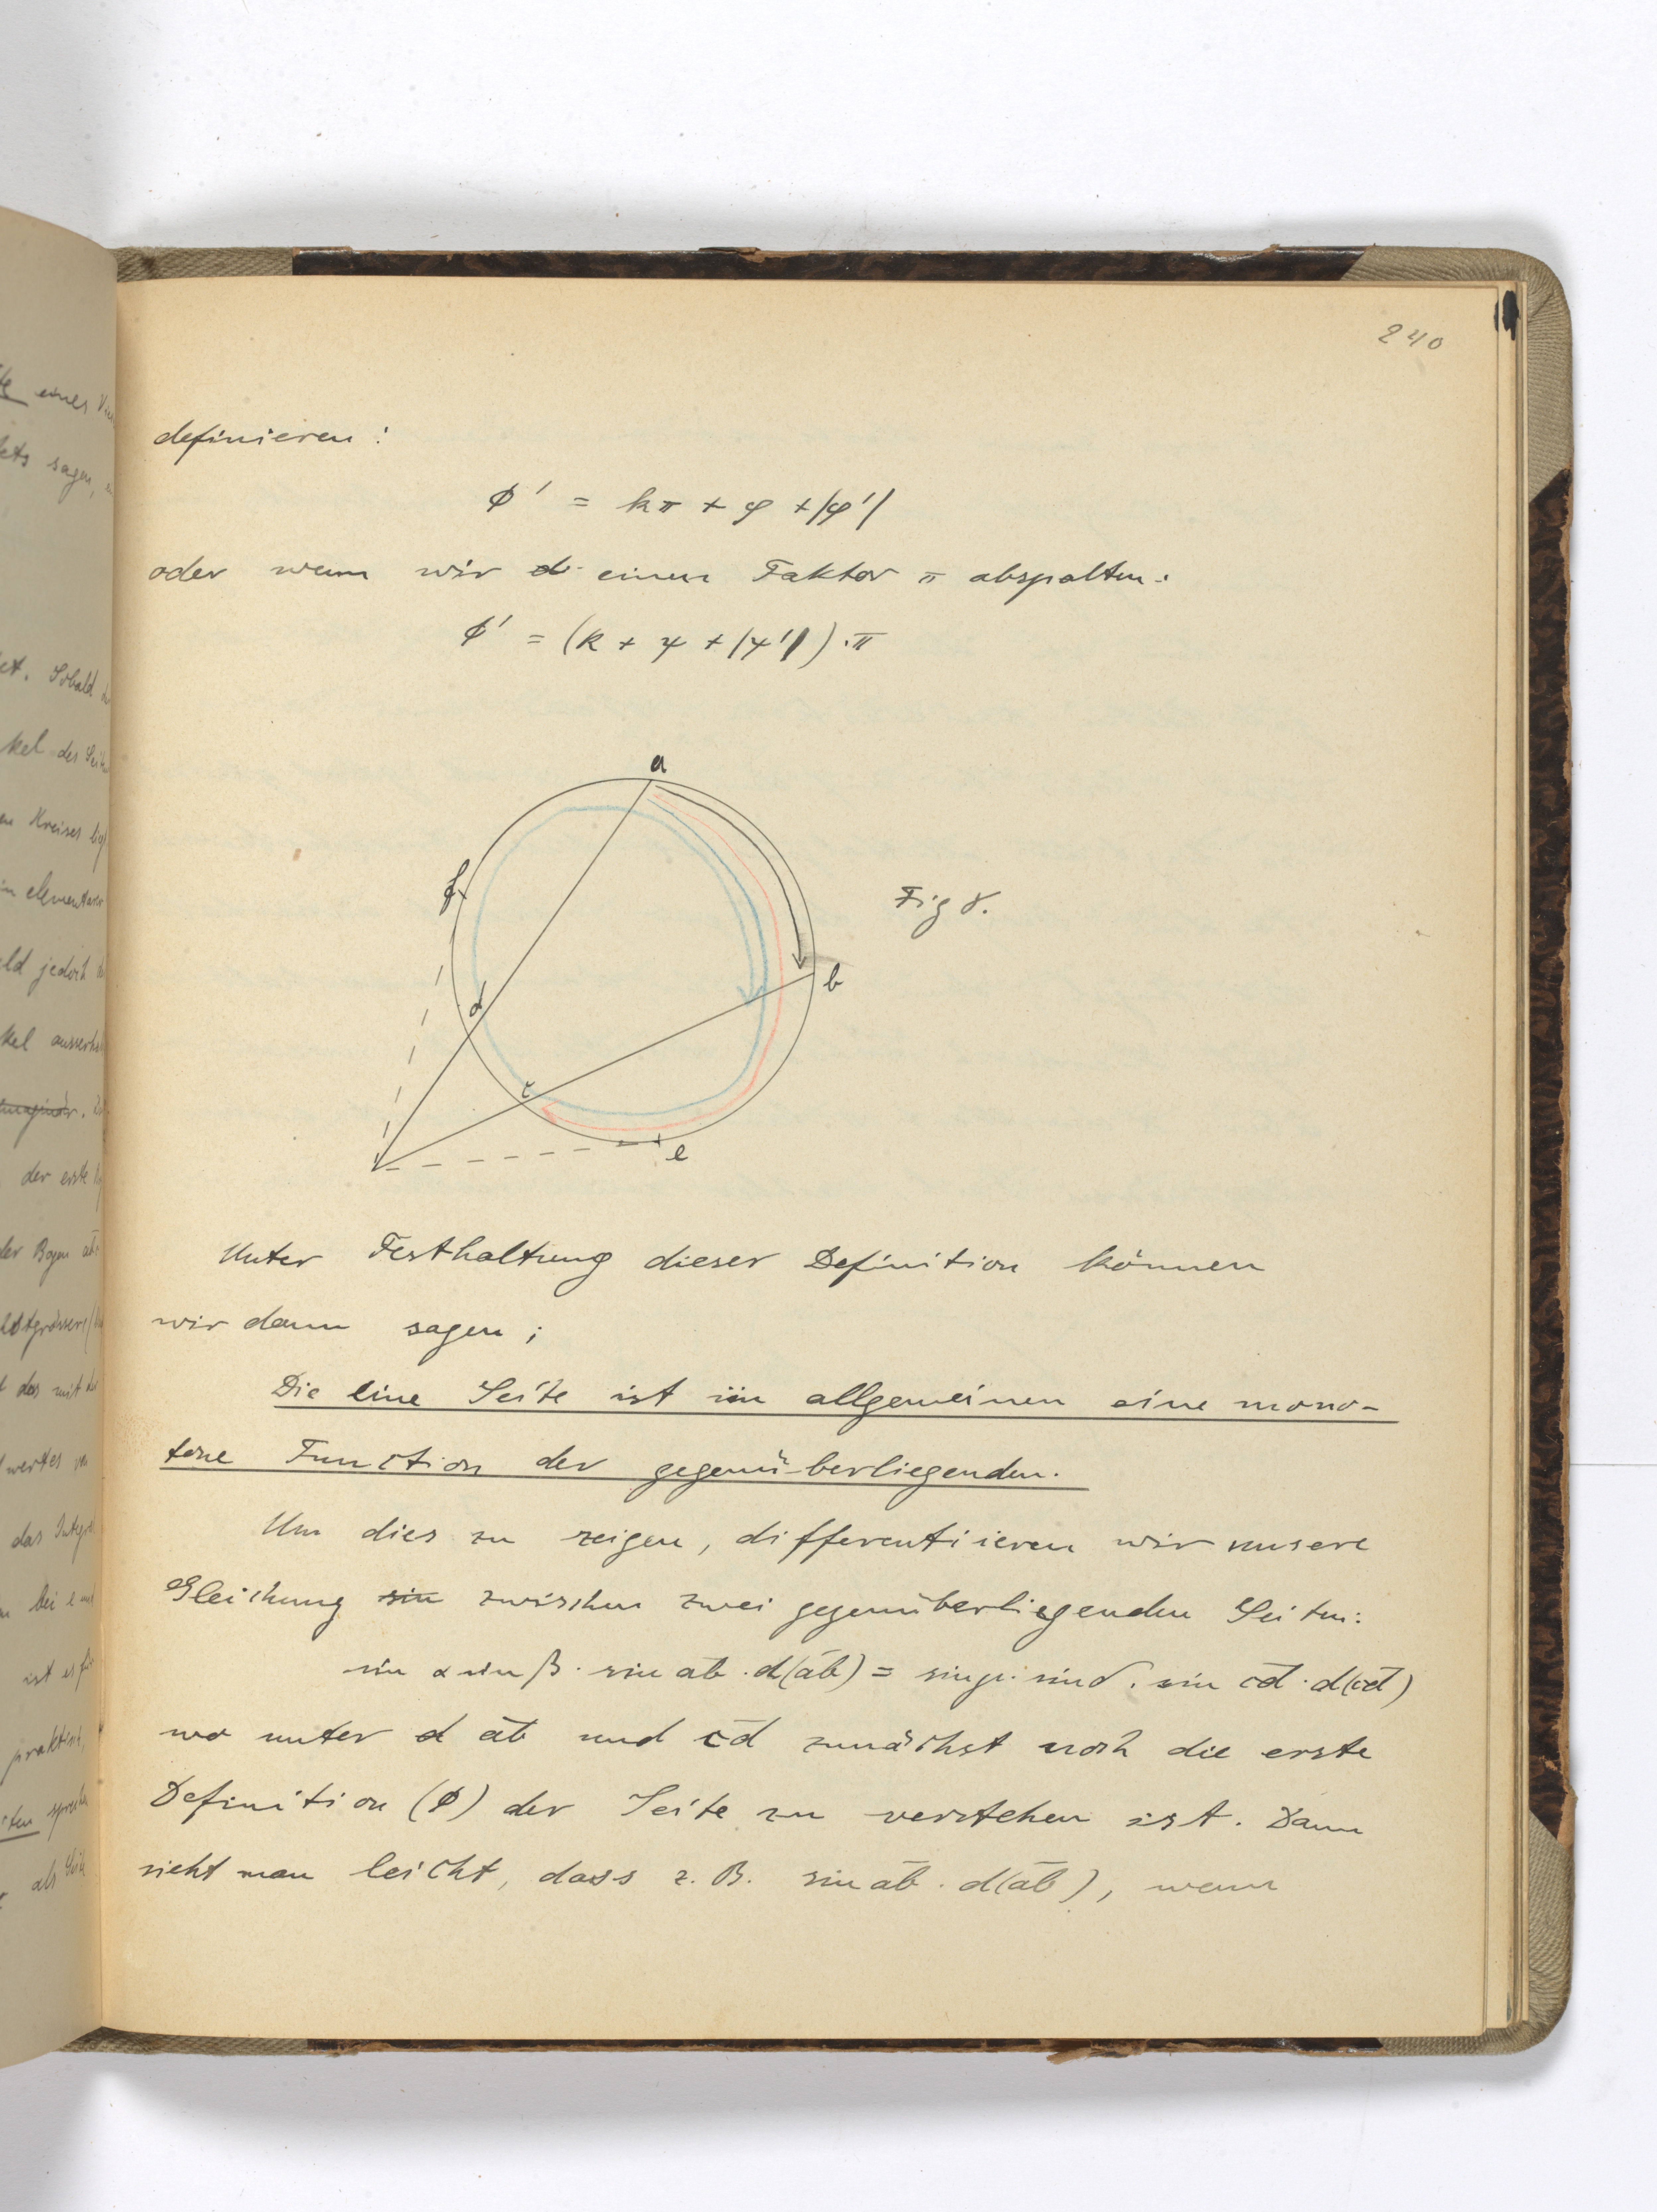 240
definieren:
ϕ' = kπ + φ + |φ'|
oder wenn wir einen Faktor π abspalten:
ϕ' = (k + ψ + |ψ'|)·π
a
f
Fig 8.
b
d
c
e
Unter Festhaltung dieser Definition können
wir dann sagen;
Die eine Seite ist im allgemeinen eine mono-
tone Function der gegenüberliegenden.
Um dies zu zeigen, differentiieren wir unsere
Gleichung sin zwischen zwei gegenüberliegenden Seiten:
sin α sin β · sin a̅b̅ · d(a̅b̅) = sin γ · sin δ · sin c̅d̅ · d(c̅d̅)
wo unter d a̅b̅ und c̅d̅ zunächst noch die erste
Definition (ϕ) der Seite zu verstehen ist. Dann
sieht man leicht, dass z. B. sin a̅b̅ · d(a̅b̅), wenn
eines
sagen,
Sobald
kel der
Kreises
elementaren
jedoch
kel
der erste
der Bogen
das mit
wertes
das
bei
ist es
praktisch,
als